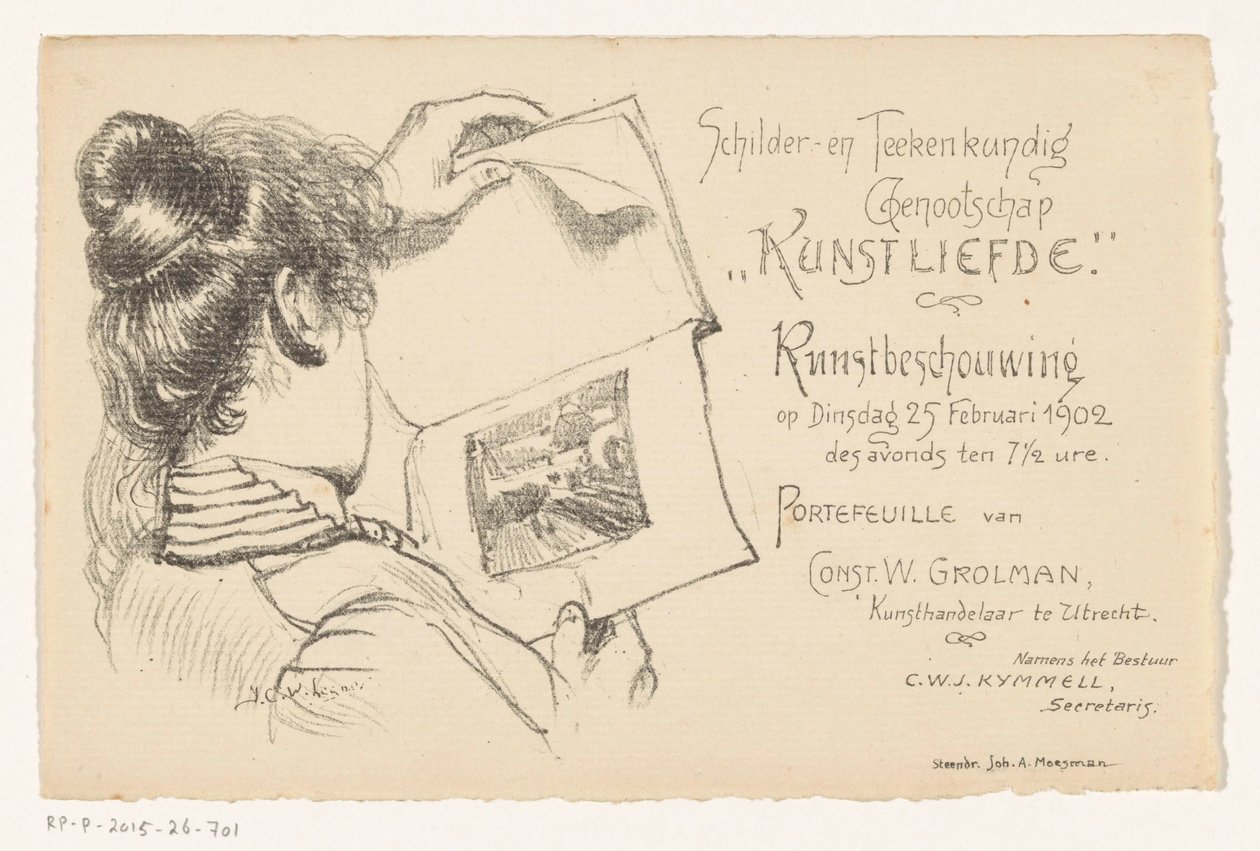 Schilder- en Teekenkundig
Genootschap
„KUNSTLIEFDE."
Kunstbeschouwing
op Dinsdag 25 Februari 1902
des avonds ten 7 1/2 ure.
PORTEFEUILLE van
CONST. W. GROLMAN,
Kunsthandelaar te Utrecht.
Namens het Bestuur
C.W.J. KYMMELL,
Secretaris.
Steendr. Joh. A. Moesman
J.C.W.
RP-P-2015-26-701